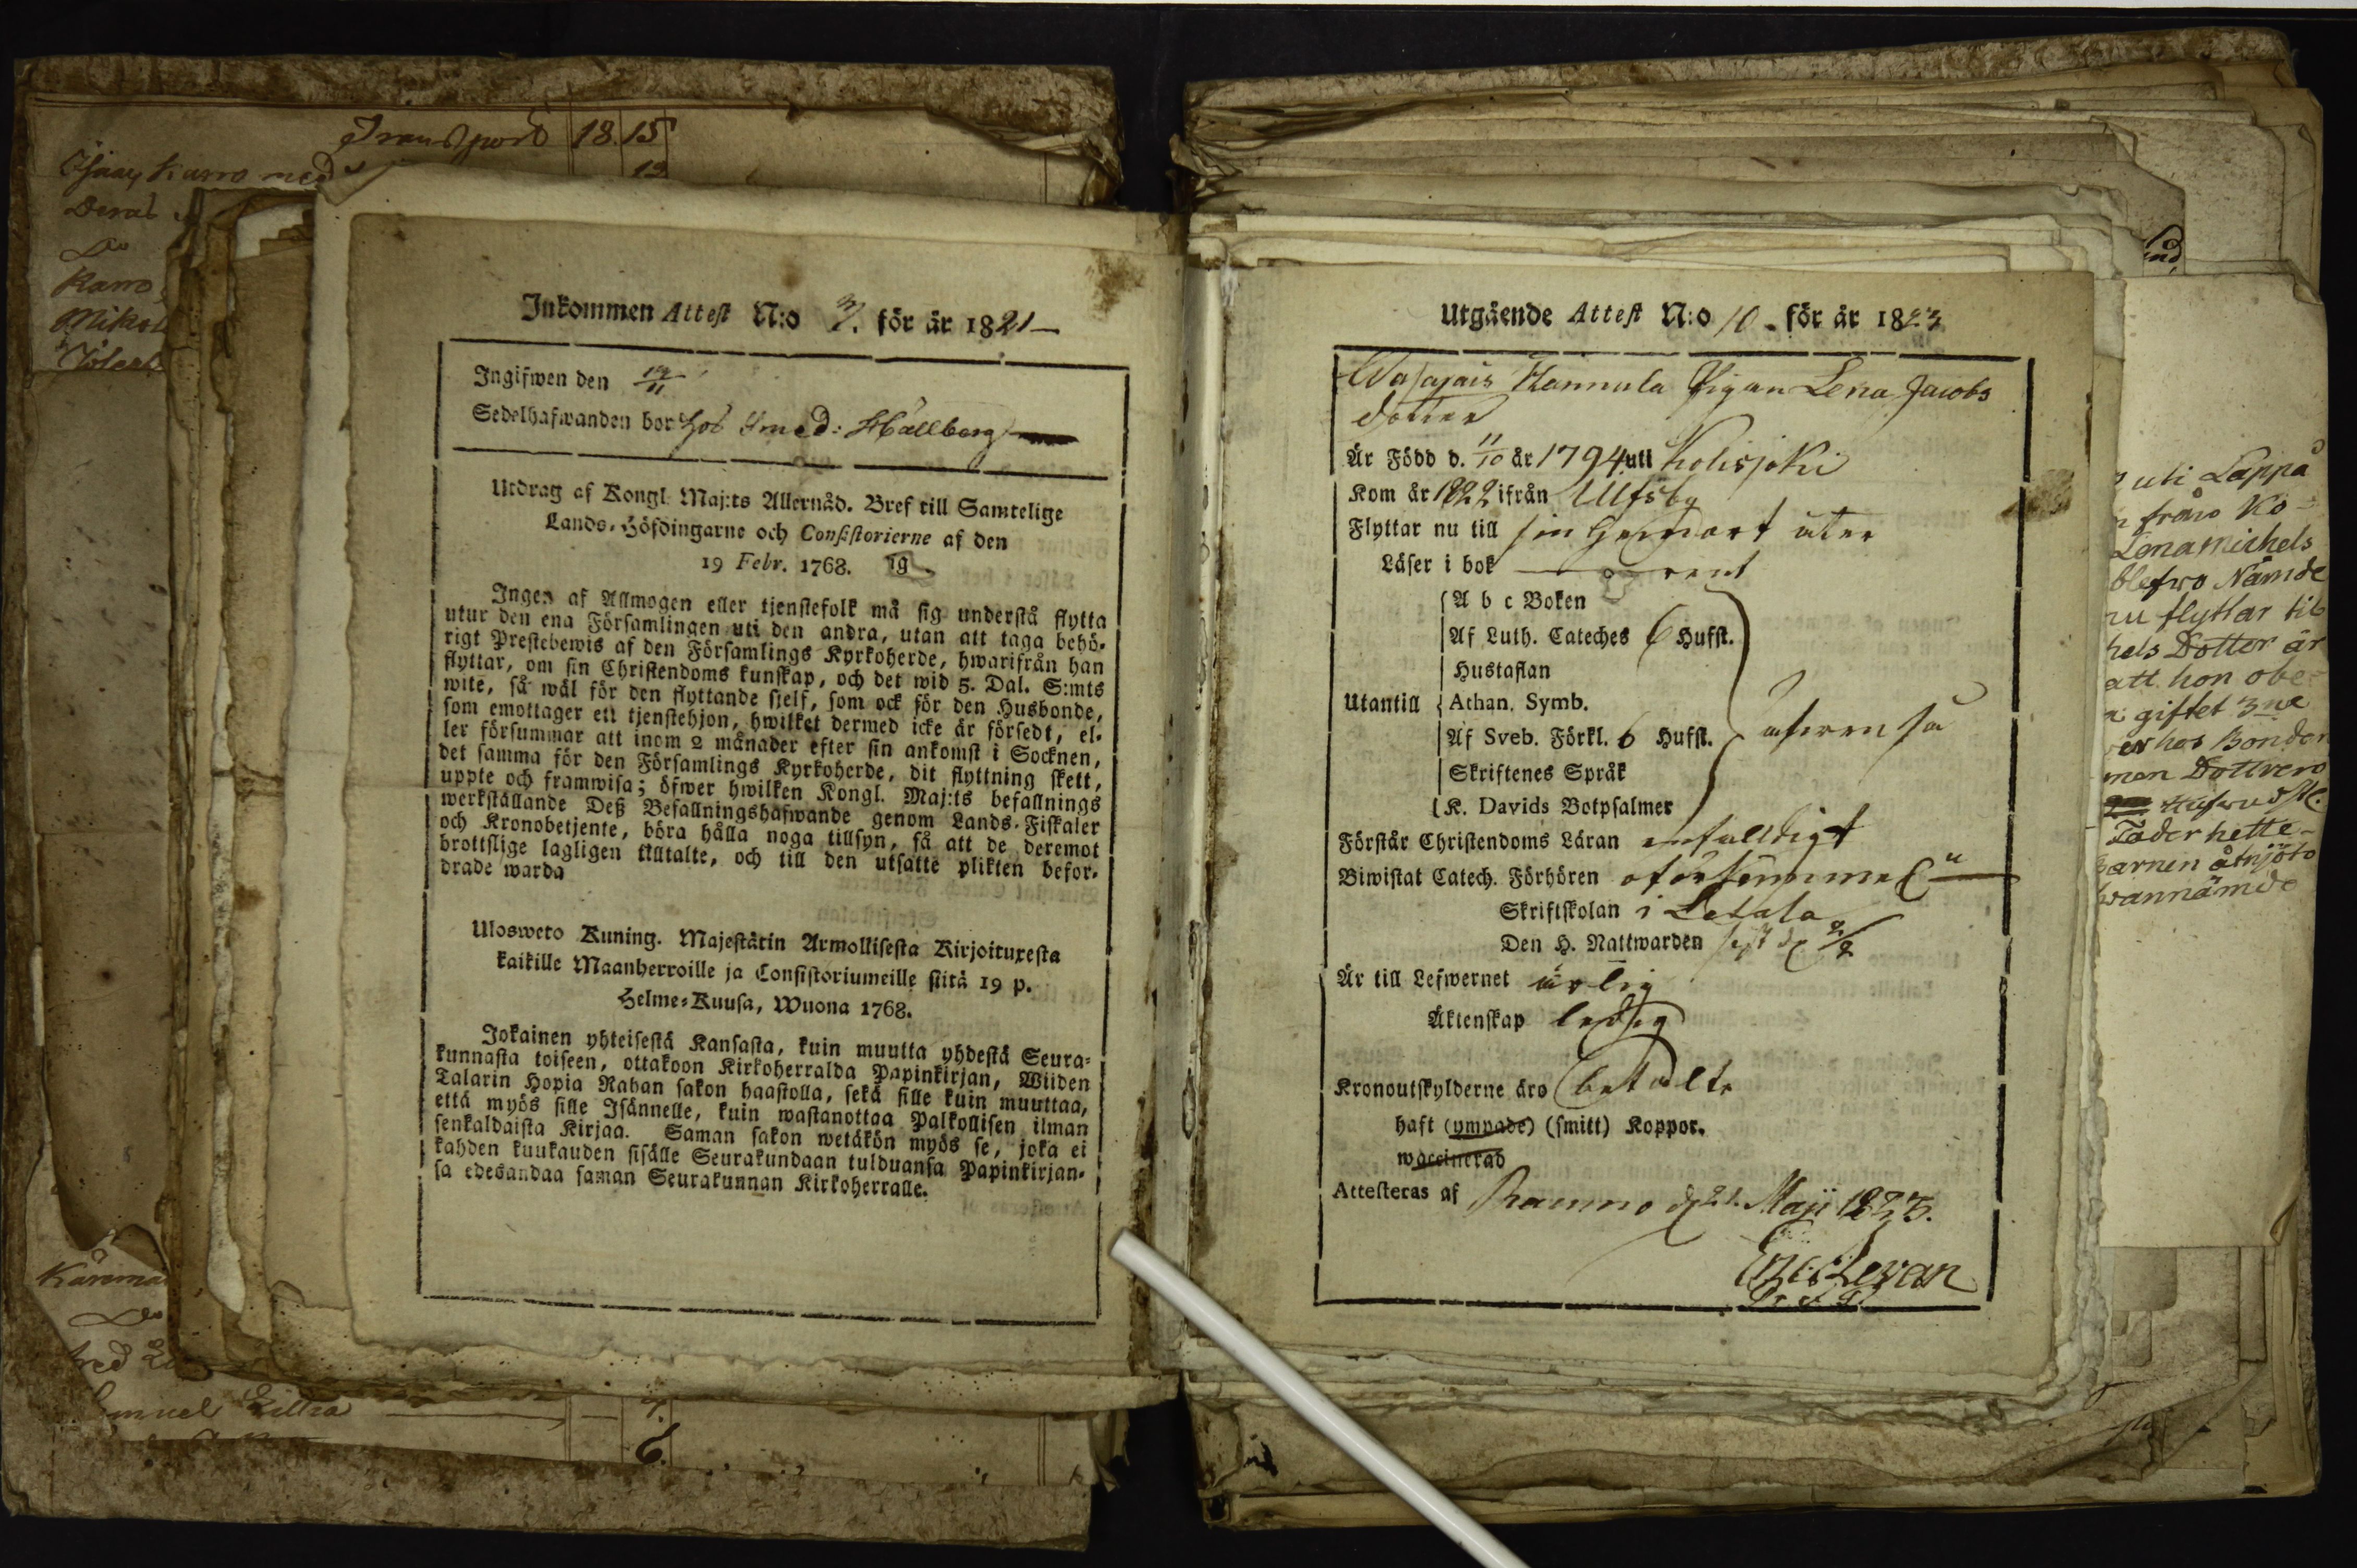 Transport 18. 15
12
Karro med
Derat
Do
Karro
Mikol
Inkommen Attest N:o 7. för år 1821
Ingifwen den 19/11
Sedelhafwanden bor hos Smed: Hällberg
Utdrag af Kongl. Maj:ts Allernåd. Bref till Samtelige
Lands-Höfdingarne och Consistorierne af den
19 Febr. 1768.
Ingen af Allmogen eller tjenstefolk må sig understå flytta
utur den ena Församlingen uti den andra, utan att taga behö-
rigt Prestebewis af den Församlings Kyrkoherde, hwarifrån han
flyttar, om sin Christendoms kunskap, och det wid 5. Dal. S:mts
wite, så wäl för den flyttande sjelf, som ock för den Husbonde,
som emottager ett tjenstehjon, hwilket dermed icke är försedt, el-
ler försummar att inom 2 månader efter sin ankomst i Socknen,
det samma för den Församlings Kyrkoherde, dit flyttning skett,
uppte och framwisa; öfwer hwilken Kongl. Maj:ts befallnings
werkställande Deß Befallningshafwande genom Lands-Fiskaler
och Kronobetjente, böra hålla noga tillsyn, så att de deremot
brottslige lagligen tilltalte, och till den utsatte plikten befor-
drade warda
Ulosweto Kuning. Majestätin Armollisesta Kirjoituxesta
kaikille Maanherroille ja Consistoriumeille siitä 19 p.
Helme-Kuusa, Wuona 1768.
Jokainen yhteisestä Kansasta, kuin muutta yhdestä Seura-
kunnasta toiseen, ottakoon Kirkoherralda Papinkirjan, Wiiden
Talarin Hopia Rahan sakon haastolla, sekä sille kuin muuttaa,
että myös sille Isännelle, kuin wastanottaa Palkollisen ilman
senkaldaista Kirjaa. Saman sakon wetäkön myös se, joka ei
kahden kuukauden sisälle Seurakundaan tulduansa Papinkirjan-
sa edesandaa saman Seurakunnan Kirkoherralle.
Kärema
Do
Samuel Lilla 7.
6.
Utgående Attest N:o 10. för år 1823
Hannula Pigan Lena Jacobs
dotter
Är Född d. 11/10 år 1794 uti Kolisjoki
Kom år 1822 ifrån Ulfsby
Flyttar nu till sin hemort åter
Läser i bok rent
A b c Boken
Af Luth. Cateches 6 Hufst.
Hustaflan
Utantill Athan. Symb.
Af Sveb. Förkl. 6 Hufst. äfwen så
Skriftenes Språk
K. Davids Botpsalmer
Förstår Christendoms Läran enfalldigt
Biwistat Catech. Förhören oförsummel.
Skriftskolan i
Den H. Nattwarden sist d.
Är till Lefwernet ärlig
Äktenskap ledig
Kronoutskylderne äro betalte
haft (ympade) (smitt) Koppor.
waccinerad
Attesteras af Raumo d. 21. Maji 1823.
Eric Levan
uti Lappå
från Ko-
Lena Michels
blefwo Nämde
nu flyttar til
hels Dotter är
att hon obe-
giftet 3ne
hos Bonden
man Dottren
Fader hette
Barnen åtnjöto
wannämde